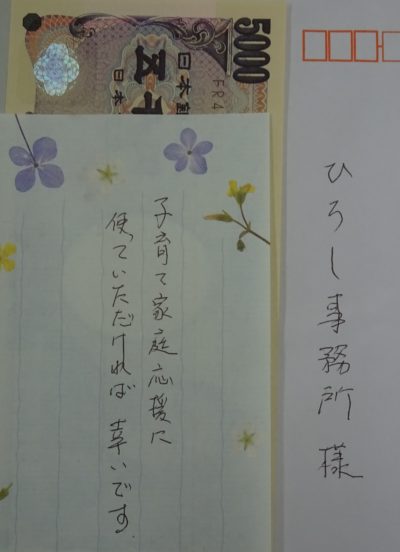 ひろし事務所様
子育て家庭応援に
使っていただければ幸いです.
5000
FR4
日本銀
五千
日本